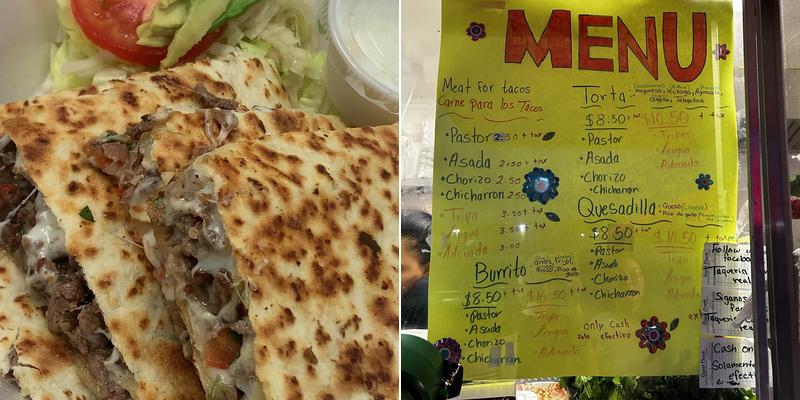 MENU
Meat for tacos
Carne para los Tacos
• Pastor 2.50 + tax
• Asada 2.50 + tax
• Chorizo 2.50
• Chicharron 2.50
• Tripa 3.50 + tax
3.50
• Adovada 3.00
Burrito
Arroz, Frijol,
Pico de
gallo
$8.50 + tax
• Pastor
• Asada
• Chorizo
• Chicharron
• Tripa
• Lengua
• Adovada
Torta
Mayonesa, Lechuga, Aguacate,
Cebolla, Jalapeños
$8.50 + tax $10.50 + tax
• Pastor
• Asada
• Chorizo
• Chicharron
• Tripas
• Lengua
• Adovada
Quesadilla
• Queso (cheese)
• Pico de gallo
$8.50 + tax $10.50 + tax
• Pastor
• Asada
• Chorizo
• Chicharron
only Cash
Solo efectivo
Follow
Taqueria
real
Siganos
Taqueria
rea
Cash on
Solamente
efecti